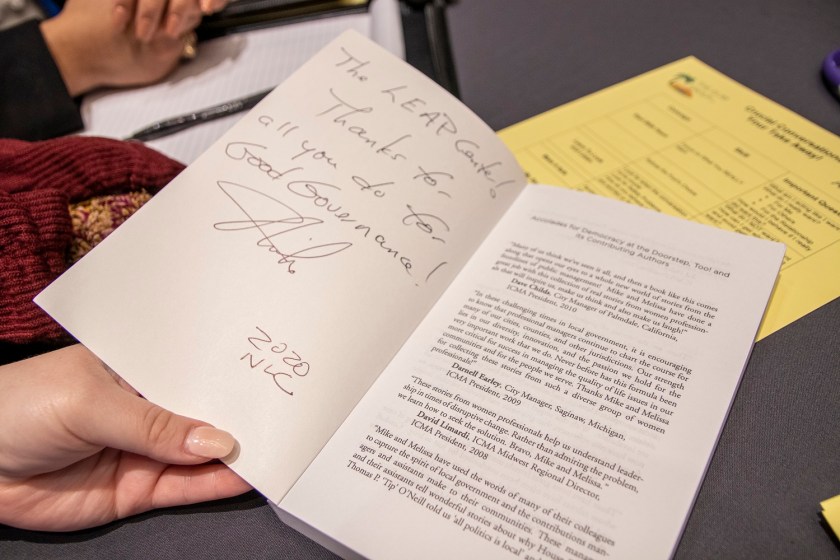 The LEAP Center!
Thanks for
all you do for
Good Governance!
2020
NLC
Accolades for Democracy at the Doorstep, Too! and
Its Contributing Authors
"Many of us think we've seen it all, and then a book like this comes
along that opens our eyes to a whole new world of stories from the
frontlines of public management! Mike and Melissa have done a
great job with this collection of real stories from women profession-
als that will inspire us, make us think and also make us laugh!"
Dave Childs, City Manager of Palmdale, California,
ICMA President, 2010
"In these challenging times in local government, it is encouraging
to know that professional managers continue to chart the course for
many of our cities, counties, and other jurisdictions. Our strength
lies in our diversity, innovation, and the passion we hold for the
very important work that we do. Never before has this formula been
more critical for success in managing the quality of life issues in our
communities and for the people we serve. Thanks Mike and Melissa
for collecting these stories from such a diverse group of women
professionals!"
Darnell Earley, City Manager, Saginaw, Michigan,
ICMA President, 2009
"These stories from women professionals help us understand leader-
ship in times of disruptive change. Rather than admiring the problem,
we learn how to seek the solution. Bravo, Mike and Melissa."
David Limardi, ICMA Midwest Regional Director,
ICMA President, 2008
"Mike and Melissa have used the words of many of their colleagues
to capture the spirit of local government and the contributions man-
agers and assistants make to their communities. These manag-
and their assistants tell wonderful stories about why House
Thomas P. 'Tip' O'Neill told us 'all politics is local' an
Crucial Conversation
Your Take Away!
Important Que